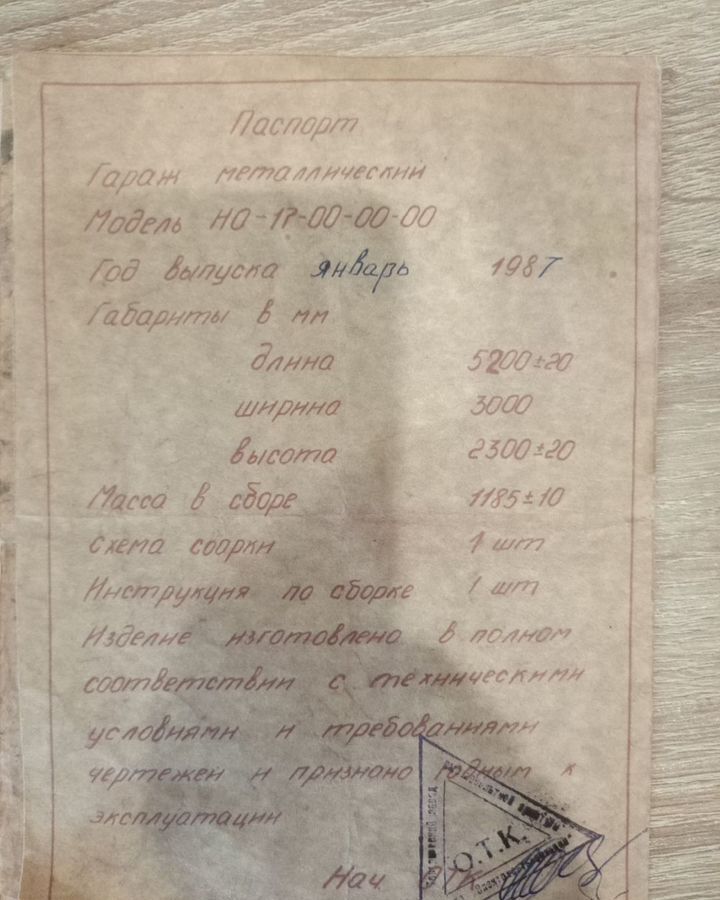 Паспорт
Гараж металлический
Модель НО-17-00-00-00
Год выпуска январь 1987
Габариты в мм
длина 5200±20
ширина 3000
высота 2300±20
Масса в сборе 1185±10
Схема сборки 1 шт
Инструкция по сборке 1 шт
Изделие изготовлено в полном
соответствии с техническими
условиями и требованиями
чертежей и признано годным к
эксплуатации
Нач. ОТК
О.Т.К.